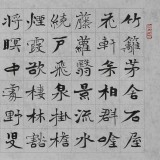 竹籬茅舍石屋
花軒松柏群吟
藤蘿翳景流水
繞戶飛泉掛簷
煙霞欲棲林壑
將暝中處野叟